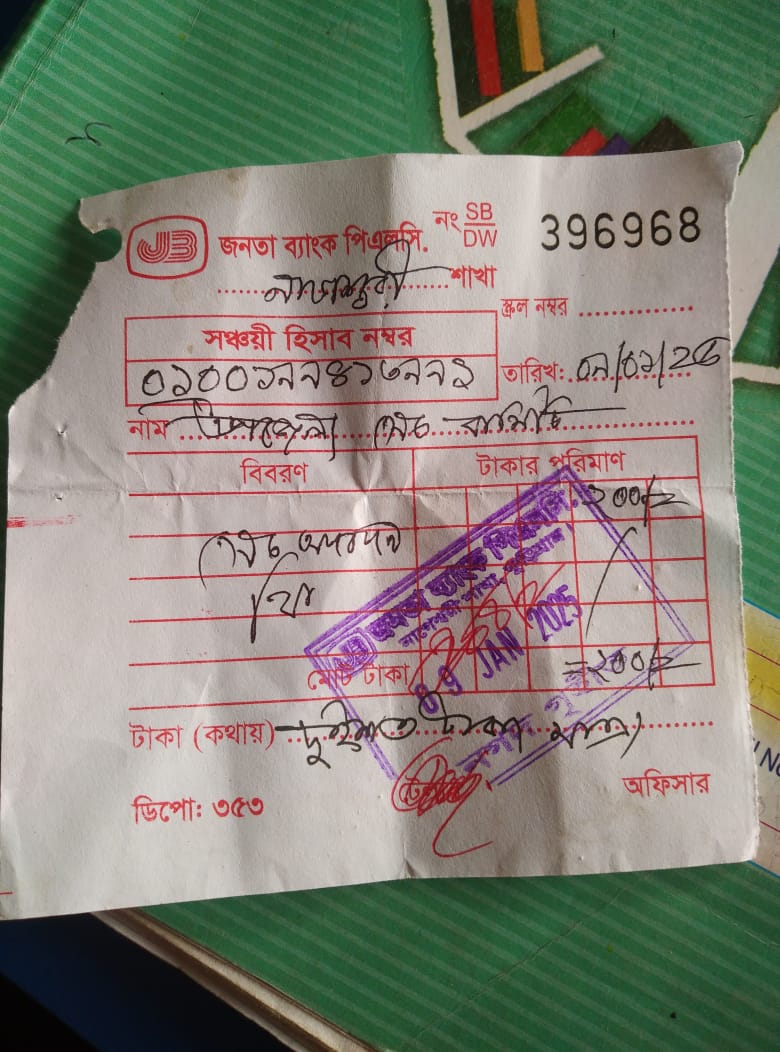 JB জনতা ব্যাংক পিএলসি. নং SB/DW 396968
নাগেশ্বরী শাখা
স্ক্রল নম্বর
সঞ্চয়ী হিসাব নম্বর
তারিখ: ০৯/০১/২৫
০১০০১৯৯৪১৬৯৯২
নাম উপজেলা সেচ কমিটি
বিবরণ টাকার পরিমাণ
২০০/=
সেচ আবেদন
ফি
জনতা ব্যাংক পিএলসি.
নাগেশ্বরী শাখা, কুড়িগ্রাম।
09 JAN 2025
মোট টাকা =২০০/=
টাকা (কথায়) দুইশত টাকা মাত্র
অফিসার
ডিপো: ৩৫৩